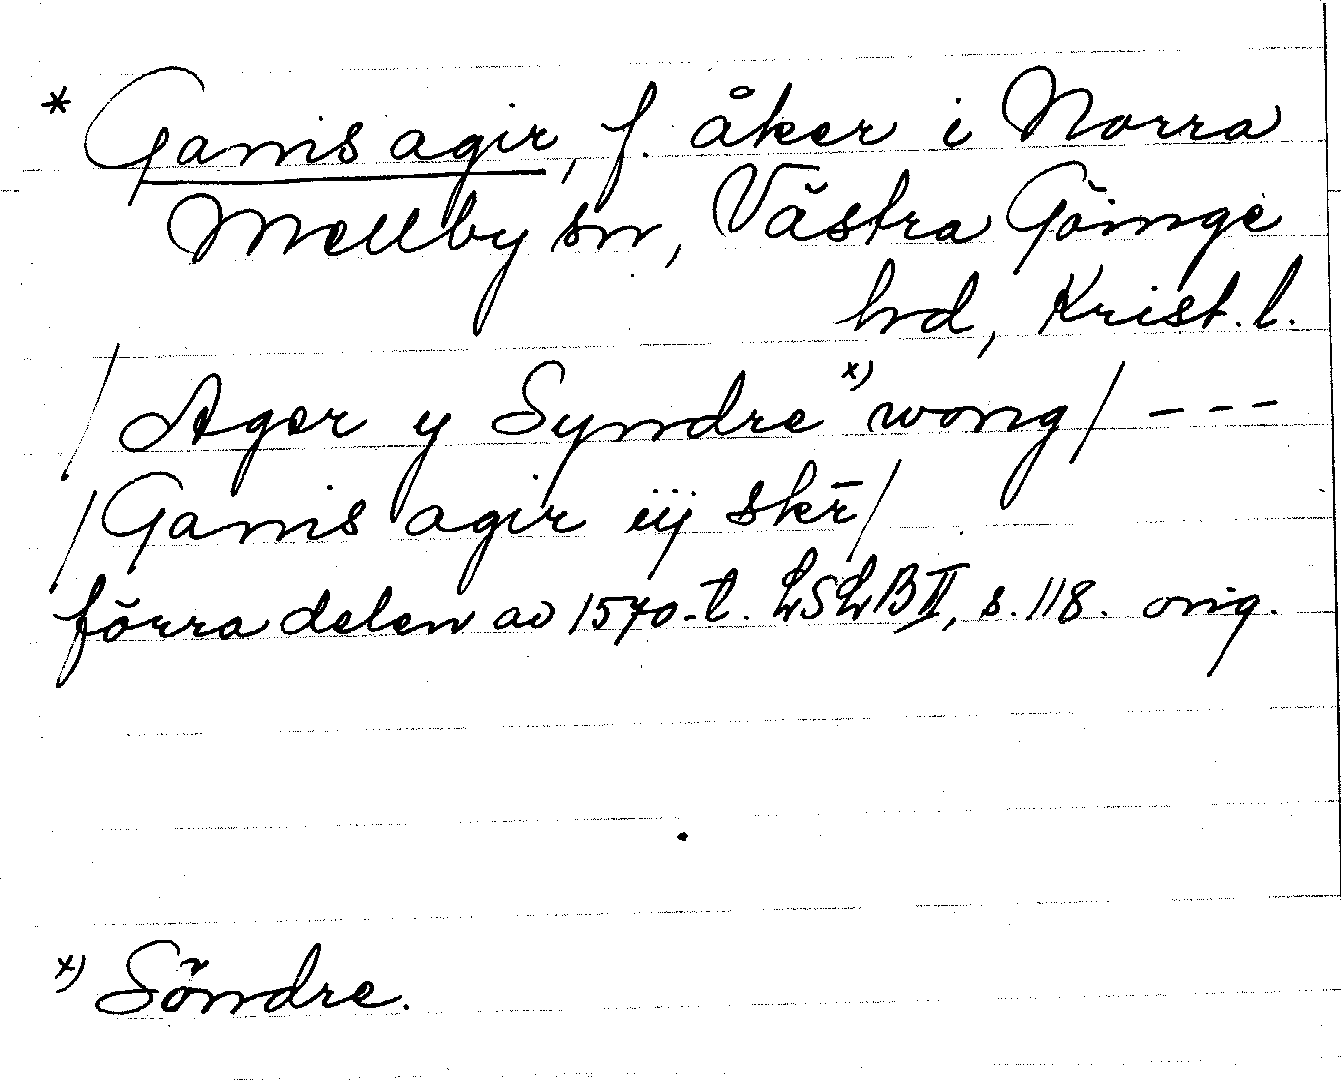 * Ganis agir, f. åker i Norra
Mellby sn, Västra Göinge
hrd, Krist. l.
/Ager y Syndre x) wong/ ---
/Ganis agir iij skr̄/
förra delen av 1540-t. LSLB II, s. 118. orig.
x) Söndre.